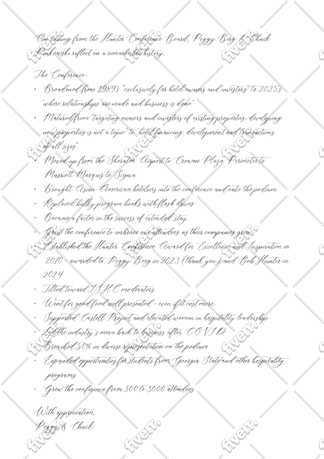 Co-retiring from the Hunter Conference Board, Peggy Berg & Chuck
Pinkowski reflect on a remarkable history.
The Conference:
• Broadened from 1989's "exclusively for hotel owners and investors" to 2025's
"where relationships are made and business is done"
• Matured from "targeting owners and investors of existing properties; developing
new properties is not a topic" to "hotel financing, development and transactions
of all sizes"
• Moved up from the Sheraton Airport to Crowne Plaza Perimeter to
Marriott Marquis to Signia
• Brought Asian American hoteliers into the conference and onto the podium
• Replaced bulky program books with flash drives
• Became a factor in the success of extended stay
• Grew the conference to embrace our attendees as their companies grew
• Established the Hunter Conference Award for Excellence and Inspiration in
2010 - awarded to Peggy Berg in 2023 (thank you) and Bob Hunter in
2024
• Tilted toward ISHC moderators
• Went for good food well presented - even if it cost more
• Supported Castell Project and elevated women in hospitality leadership
• Led the industry's move back to business after COVID
• Breached 50% in diverse representation on the podium
• Expanded opportunities for students from Georgia State and other hospitality
programs
• Grew the conference from 300 to 3000 attendees
With appreciation,
Peggy & Chuck
fiverr